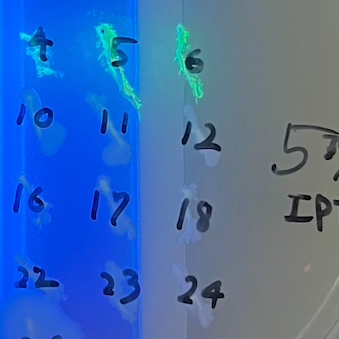 4 5 6
10 11 12
16 17 18
22 23 24
5
IP